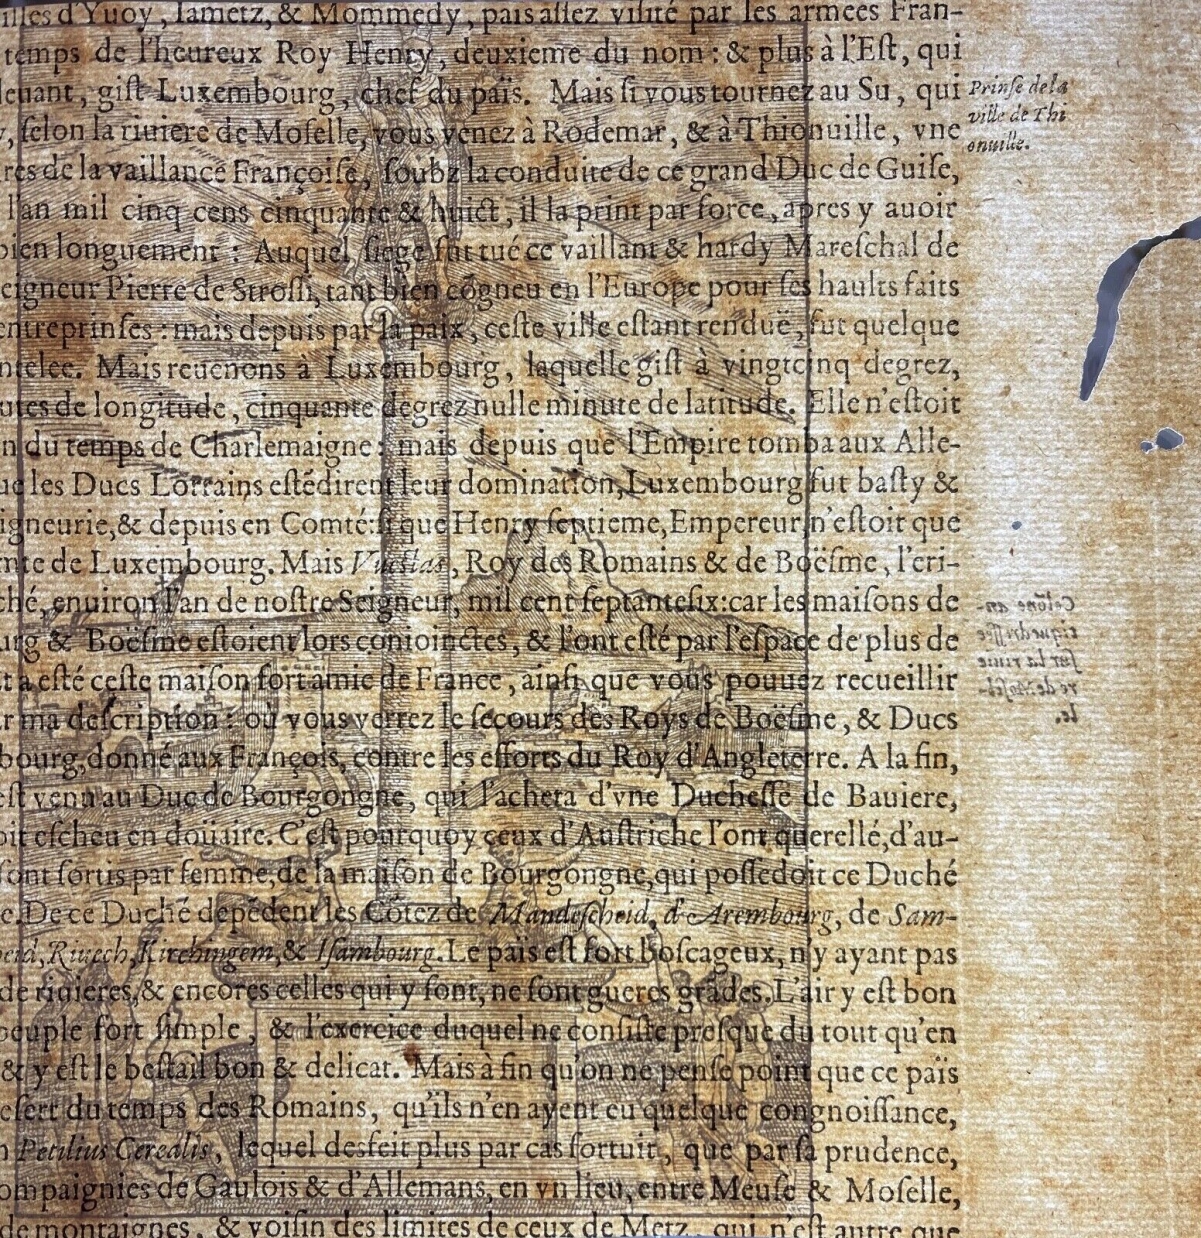 illes d'Yuoy, Iametz, & Mommedy, païs assez visité par les armees Fran-
temps de l'heureux Roy Henry, deuxieme du nom: & plus à l'Est, qui
leuant, gist Luxembourg, chef du païs. Mais si vous tournez au Su, qui
, selon la riuiere de Moselle, vous venez à Rodemar, & à Thionuille, vne
res de la vaillance Françoise, soubz la conduite de ce grand Duc de Guise,
l'an mil cinq cens cinquante & huict, il la print par force, apres y auoir
bien longuement: Auquel siege fut tué ce vaillant & hardy Mareschal de
eigneur Pierre de Strossi, tant bien cõgneu en l'Europe pour ses haults faits
entreprinses: mais depuis par la paix, ceste ville estant renduë, fut quelque
ntelee. Mais reuenons à Luxembourg, laquelle gist à vingtcinq degrez,
utes de longitude, cinquante degrez nulle minute de latitude. Elle n'estoit
n du temps de Charlemaigne: mais depuis que l'Empire tomba aux Alle-
ue les Ducs Lorrains estēdirent leur domination, Luxembourg fut basty &
igneurie, & depuis en Comté: si que Henry septieme, Empereur, n'estoit que
mte de Luxembourg. Mais Vuestas, Roy des Romains & de Boësme, l'eri-
ché, enuiron l'an de nostre Seigneur, mil cent septantesix: car les maisons de
urg & Boësme estoient lors conioinctes, & l'ont esté par l'espace de plus de
t a esté ceste maison fort amie de France, ainsi que vous pouuez recueillir
r ma description: où vous verrez le secours des Roys de Boësme, & Ducs
bourg, donné aux François, contre les efforts du Roy d'Angleterre. A la fin,
est venu au Duc de Bourgongne, qui l'acheta d'vne Duchesse de Bauiere,
oit escheu en doüaire. C'est pourquoy ceux d'Austriche l'ont querellé, d'au-
sont sortis par femme, de la maison de Bourgongne, qui possedoit ce Duché
e. De ce Duché depēdent les Cõtez de Mandescheid, d'Arembourg, de Sam-
eid, Riuech, Kirchingem, & Isambourg. Le païs est fort boscageux, n'y ayant pas
de riuieres, & encores celles qui y sont, ne sont gueres grādes. L'air y est bon
peuple fort simple, & l'exercice duquel ne consiste presque du tout qu'en
& y est le bestail bon & delicat. Mais à fin qu'on ne pense point que ce païs
esert du temps des Romains, qu'ils n'en ayent eu quelque congnoissance,
n Petilius Cerealis, lequel desfeit plus par cas fortuit, que par sa prudence,
ompaignies de Gaulois & d'Allemans, en vn lieu, entre Meuse & Moselle,
de montaignes, & voisin des limites de ceux de Metz, qui n'est autre que
Prinse de la
ville de Thi
onuille.